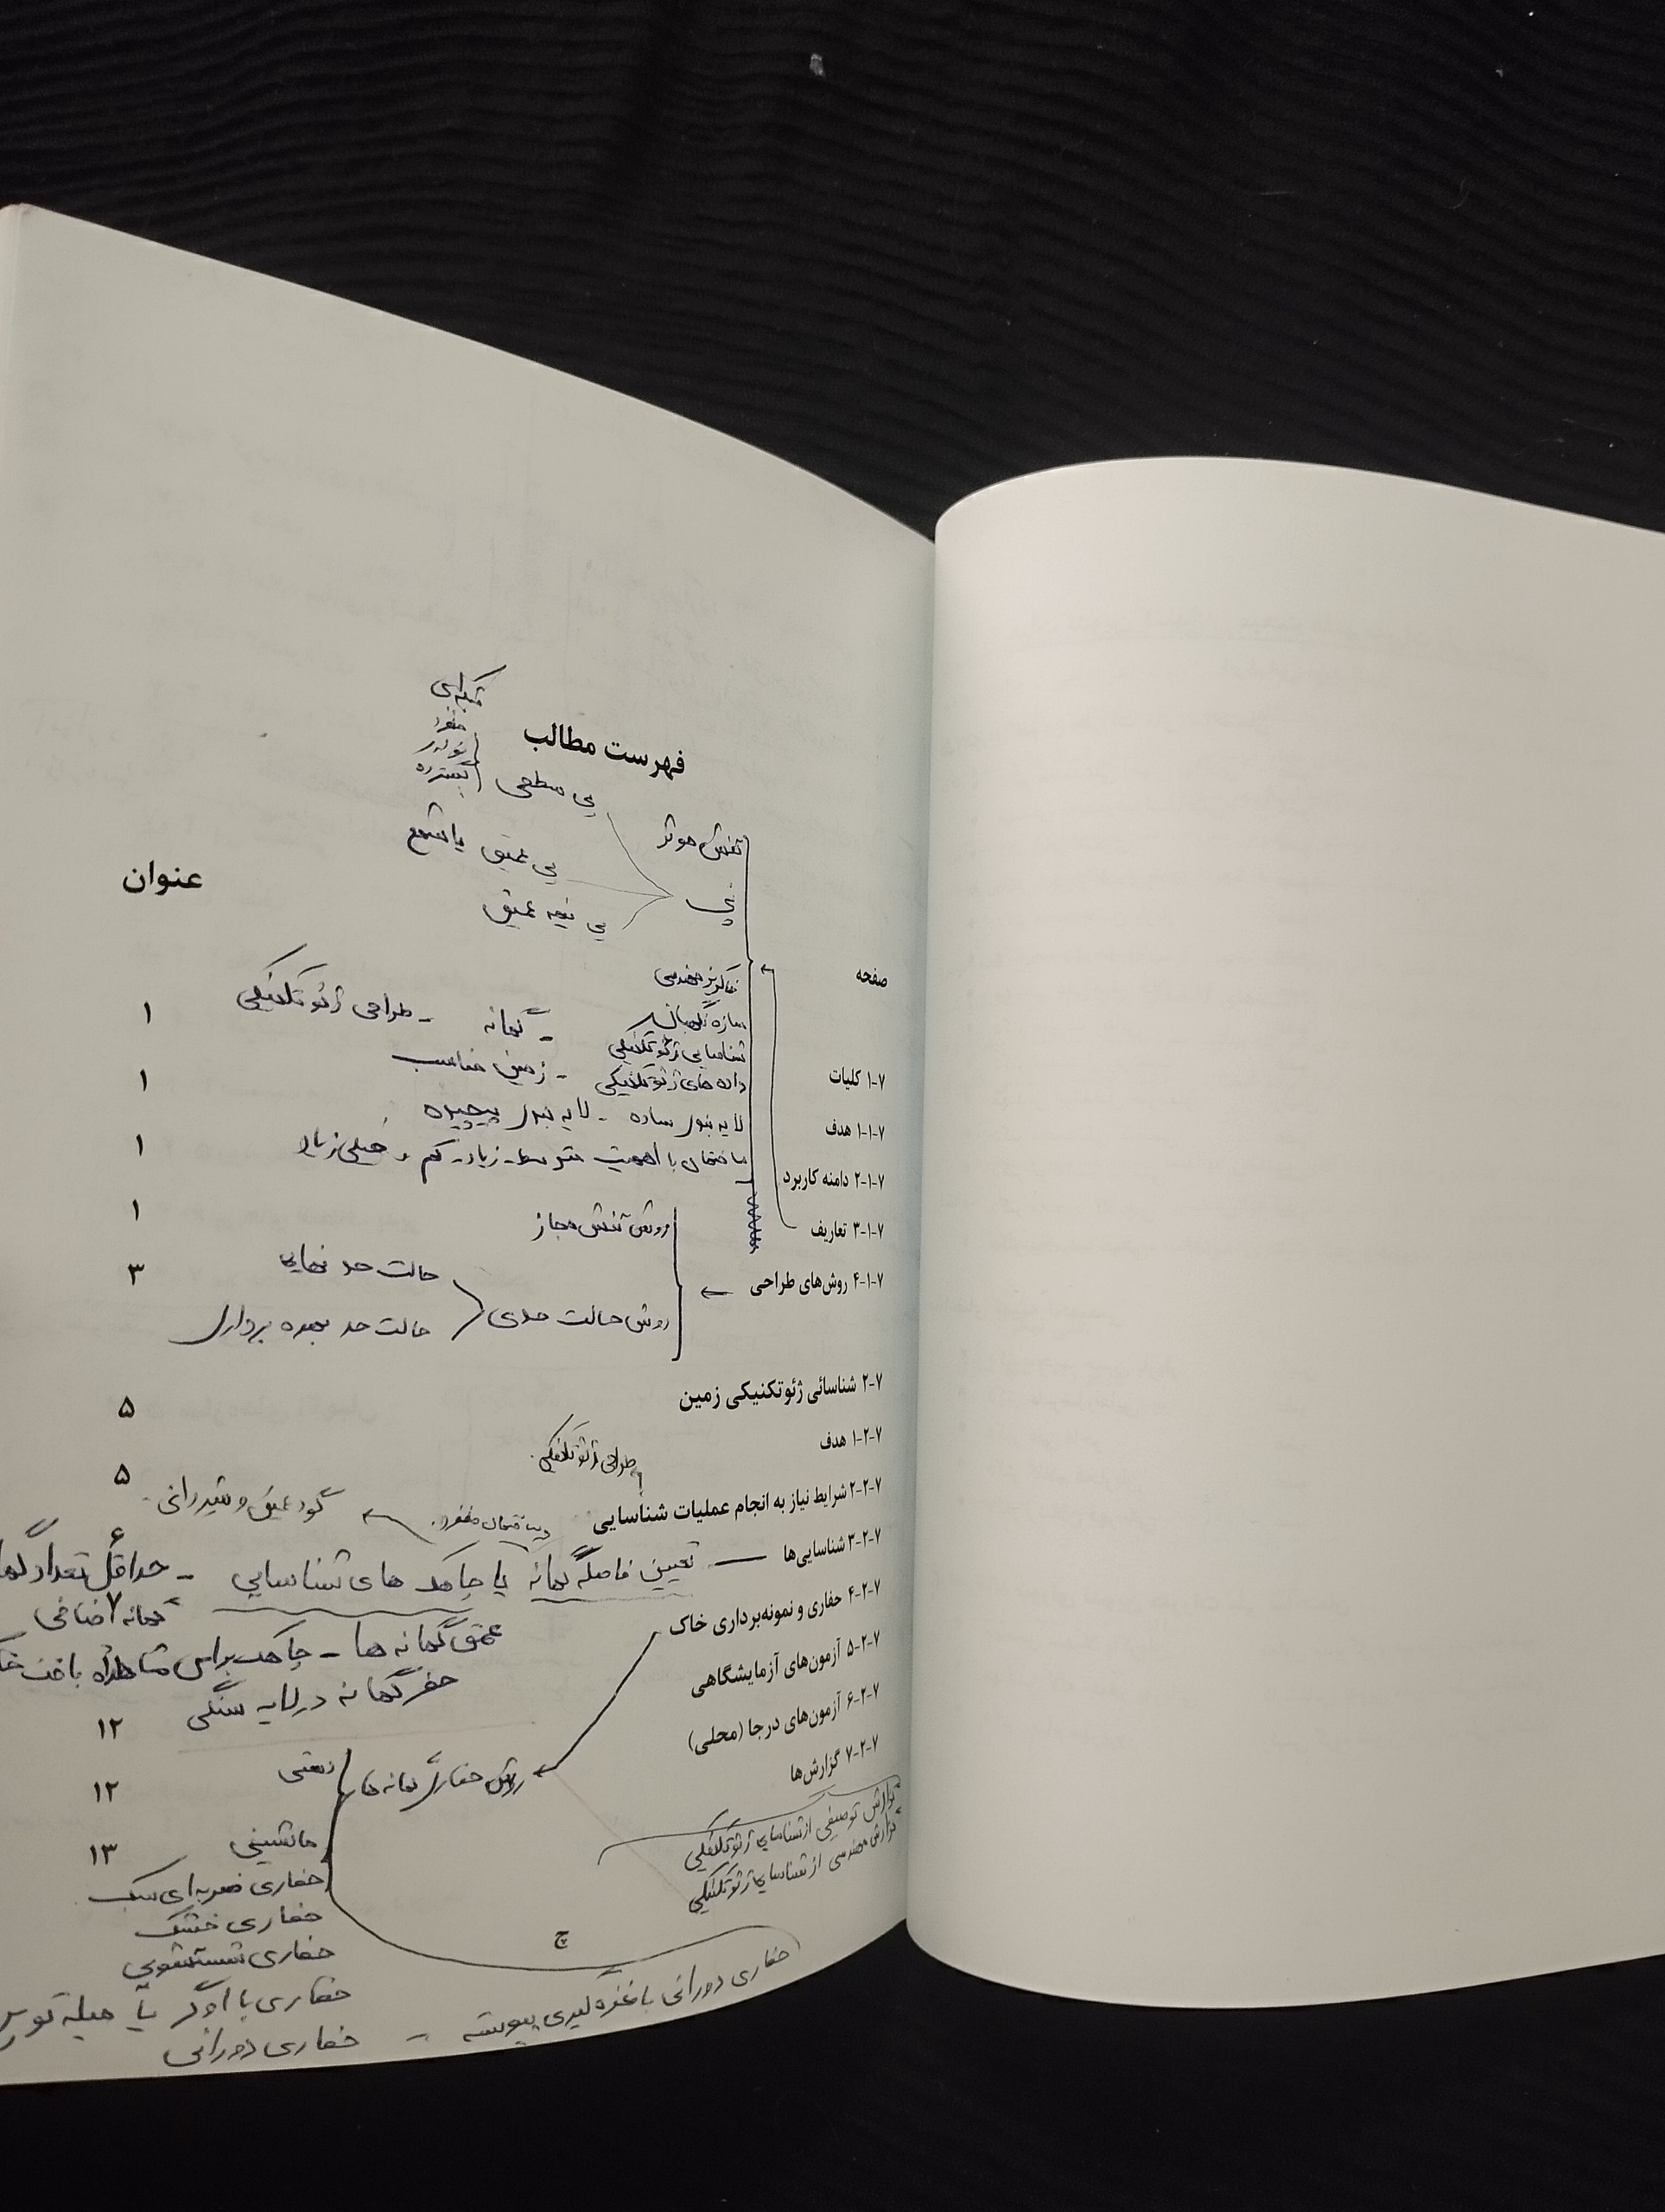 تکیه‌ای
منفرد
نواری
گسترده
فهرست مطالب
پی سطحی
تنش موثر
پی عمیق یا شمع
پی
پی نیمه عمیق
عنوان
صفحه
خاکریز مهندسی
سازه نگهبان - گمانه - طراحی ژئوتکنیکی
شناسایی ژئوتکنیکی
داده های ژئوتکنیکی - زمین مناسب
لایه بندی ساده - لایه بندی پیچیده
ساختمان با اهمیت متوسط - زیاد - کم و خیلی زیاد
۷-۱ کلیات ۱
۷-۱-۱ هدف ۱
۷-۱-۲ دامنه کاربرد ۱
۷-۱-۳ تعاریف ۱
۷-۱-۴ روش‌های طراحی ۳
روش تنش مجاز
روش حالت حدی
حالت حد نهایی
حالت حد بهره برداری
۷-۲ شناسائی ژئوتکنیکی زمین ۵
۷-۲-۱ هدف ۵
طراحی ژئوتکنیکی
۷-۲-۲ شرایط نیاز به انجام عملیات شناسایی ۶
گود عمیق و شیروانی
۷-۲-۳ شناسایی‌ها ۷
تعیین فاصله گمانه یا چاهک های شناسایی - حداقل تعداد
گمانه اضافی
عمق گمانه ها - چاهک برای مشاهده بافت
حفر گمانه در لایه سنگی
۷-۲-۴ حفاری و نمونه‌برداری خاک
۷-۲-۵ آزمون‌های آزمایشگاهی ۱۲
۷-۲-۶ آزمون‌های درجا (محلی) ۱۲
۷-۲-۷ گزارش‌ها ۱۳
گزارش توصیفی از شناسایی ژئوتکنیکی
گزارش مهندسی از شناسایی ژئوتکنیکی
روش حفاری گمانه ها
دستی
ماشینی
حفاری ضربه‌ای سبک
حفاری خشک
حفاری شستشویی
حفاری با اوگر یا میله
حفاری دورانی - حفاری دورانی با مغزه گیری پیوسته
ج